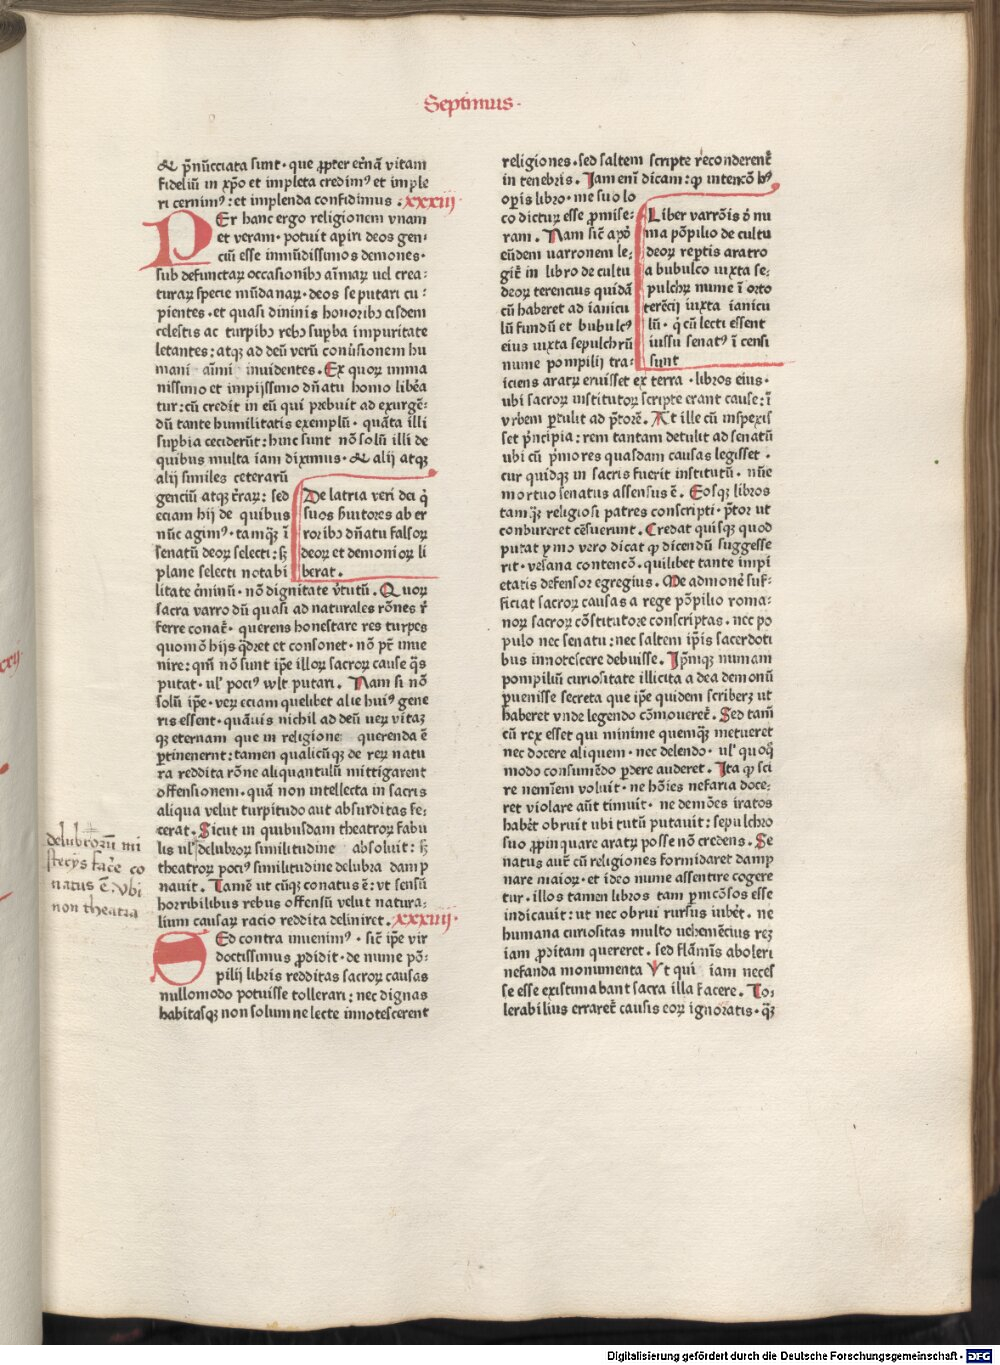 Septimus
⁊ p̄nūcciata sunt· que ꝓpter et̄nā vitam
fideliū in xp̄o et impleta credimꝰ et imple
ri cernimꝰ: et implenda confidimus . xxxiij
PEr hanc ergo religionem vnam
et veram· potuit apiri deos gen⸗
ciū esse inmūdissimos demones·
sub defunctaꝝ occasionibꝫ aīmaꝝ uel crea⸗
turaꝝ specie mūdanaꝝ· deos se putari cu⸗
pientes· et quasi diuinis honoribꝫ eisdem
celestis ac turpibꝫ rebꝫ suꝑba impuritate
letantes: atqꝫ ad deū verū conūsionem hu
mani aīmi inuidentes. Ex quoꝝ imma
nissimo et impijssimo dn̄atu homo libēa
tur: cū credit in eū qui p̄ebuit ad exurgē⸗
dū tante humilitatis exemplū· quāta illi
suꝑbia ceciderūt: hinc sunt nō solū illi de
quibus multa iam diximus· ⁊ alij atqꝫ
alij similes ceterarū
genciū atqꝫ t̄raꝝ: sed
eciam hij de quibus
nūc agimꝰ· tamqꝫ̄ ī
senatū deoꝝ selecti: sꝫ
plane selecti notabi
De latria veri dei q̇
suos ẜuitores ab er
roribꝫ dn̄atu falsoꝝ
deoꝝ et demonioꝝ li
berat.
litate c̄minū· nō dignitate v̄tutū. Quoꝝ
sacra varro dū quasi ad naturales rōnes r̄
ferre conat̄· querens honestare res turpes
quomō hijs q̇dret et consonet· nō pt̄ inue
nire: qm̄ nō sunt ip̄e illoꝝ sacroꝝ cause q̄s
putat· ul̓ pociꝰ wlt putari. Nam si nō
solū ip̄e· veꝝ eciam quelibet alie huiꝰ gene
ris essent· quāuis nichil ad deū ueꝝ vitaꝫ
qꝫ eternam que in religione querenda ē
ꝑtinenernt: tamen qualicūqꝫ de reꝝ natu
ra reddita rōne aliquantulū mittigarent
offensionem· quā non intellecta in sacris
aliqua velut turpitudo aut absurditas fe⸗
cerat. Sicut in quibusdam theatroꝝ fabu
lis ul̓ delubroꝝ similitudine absoluit: sꝫ
theatroꝝ pociꝰ similitudine delubra damp
nauit. Tamē ut cūqꝫ conatus ē: vt sensū
horribilibus rebus offensū velut natura⸗
lium causaꝝ racio reddita deliniret. xxxiiij·
delubrorū mi
sterijs fac̄e co
natus ē. vbi
non theatra
SEd contra inuenimꝰ· sic̄t ip̄e vir
doctissimus ꝓdidit· de nume pō⸗
pilij libris redditas sacroꝝ causas
nullomodo potuisse tollerari: nec dignas
habitasqꝫ non solum ne lecte innotescerent
religiones· sed saltem scripte reconderent̄
in tenebris. Jam eni dicam: ꝙ intencō hꝰ
oꝑis libro· me suo lo
co dictuꝝ esse ꝓmise⸗
ram. Nam sic̄t apđ
eūdem uarronem le⸗
git̄ in libro de cultu
deoꝝ terencius quidā
cū haberet ad ianicu
lū fundū et bubulcꝰ
eius iuxta sepulchrū
nume pompilij tra⸗
Liber varrōis đ nu
ma pōpilio de cultu
deoꝝ reꝑtis aratro
a bubulco iuxta se⸗
pulchꝝ nume ī orto
terēcij iuxta ianicu
lū· q̇ cū lecti essent
iussu senatꝰ ī censi
sunt
iciens aratꝝ eruisset ex terra· libros eius·
ubi sacroꝝ institutoꝝ scripte erant cause: ī
vrbem ꝑtulit ad p̄torē. At ille cū inspexis
set p̄ncipia: rem tantam detulit ad senatū
ubi cū p̄mores quasdam causas legisset·
cur quidqꝫ in sacris fuerit institutū· nūe
mortuo senatus assensus ē. Eosqꝫ libros
tamqꝫ religiosi patres conscripti· p̄tor ut
conbureret cēsuerunt. Credat quisqꝫ quod
putat ymo vero dicat ꝙ dicendū suggesse
rit· vesana contencō· quilibet tante impi
etatis defensor egregius. Me admonē suf⸗
ficiat sacroꝝ causas a rege pōpilio roma⸗
noꝝ sacroꝝ cōstitutore conscriptas· nec po
pulo nec senatu: nec saltem ip̄is sacerdoti
bus innotescere debuisse. Ip̄mqꝫ numam
pompiliū curiositate illicita a dea demonū
ꝑuenisse secreta que ipe quidem scriberꝫ ut
haberet vnde legendo cōmoueret̄. Sed tam̄
cū rex esset qui minime quemqꝫ̄ metueret
nec docere aliquem· nec delendo· ul̓ quoqꝫ̄
modo consumēdo ꝑdere auderet. Ita ꝙ sci
re neminem voluit· ne hōies nefaria doce⸗
ret violare aūt timuit· ne demōes iratos
haberet obruit ubi tutū putauit: sepulchro
suo ꝓpinquare aratꝝ posse nō credens. Se
natus aut̄ cū religiones formidaret damp
nare maioꝝ· et ideo nume assentire cogere
tur· illos tamen libros tam ꝑnicōsos esse
indicauit: ut nec obrui rursus iubēt· ne
humana curiositas multo uehemēcius reꝫ
iam ꝓditam quereret· sed flāmis aboleri
nefanda monumenta Vt qui iam neces
se esse existimabant sacra illa facere. To⸗
lerabilius erraret̄ causis eoꝝ ignoratis· qꝫ̄
Digitalisierung gefördert durch die Deutsche Forschungsgemeinschaft - DFG